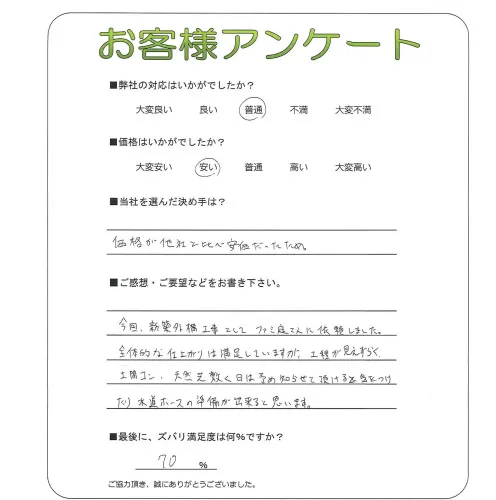 お客様アンケート
■弊社の対応はいかがでしたか？
大変良い 良い 普通 不満 大変不満
■価格はいかがでしたか？
大変安い 安い 普通 高い 大変高い
■当社を選んだ決め手は？
価格が他社と比べ安価だったため。
■ご感想・ご要望などをお書き下さい。
今回、新築外構工事として ファミ庭さんに依頼しました。
全体的な仕上がりは満足していますが、工程が見えずらく、
土間コン、天然芝敷く日は予め知らせて頂ける
たり 水道ホースの準備が出来ると思います。
■最後に、ズバリ満足度は何%ですか？
70 %
ご協力頂き、誠にありがとうございました。